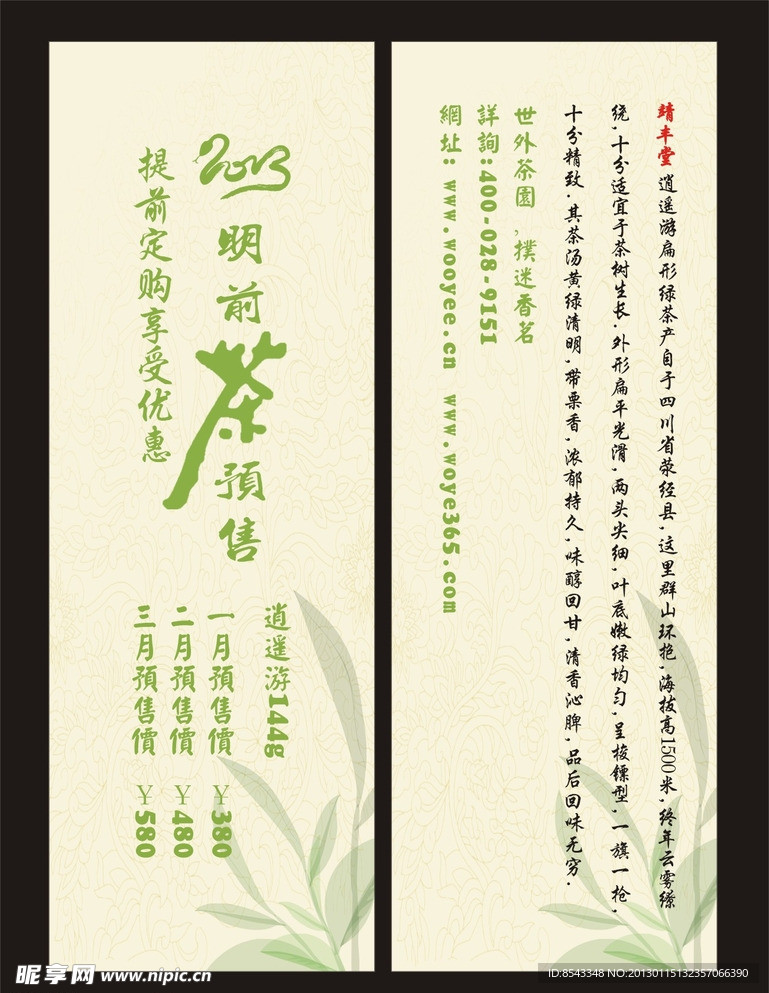 2013
明前茶預售
提前定购享受优惠
逍遥游144g
一月預售價 ￥380
二月預售價 ￥480
三月預售價 ￥580
靖丰堂 逍遥游扁形绿茶产自于四川省荥经县,这里群山环抱,海拔高1500米,终年云雾缭
绕,十分适宜于茶树生长.外形扁平光滑,两头尖细,叶底嫩绿均匀,呈梭镖型,一旗一抢,
十分精致.其茶汤黄绿清明,带栗香,浓郁持久,味醇回甘,清香沁脾,品后回味无穷.
世外茶園,撲迷香茗
詳詢:400-028-9151
網址: www.wooyee.cn www.woye365.com
昵享网 www.nipic.cn
ID:8543348 NO:20130115132357066390